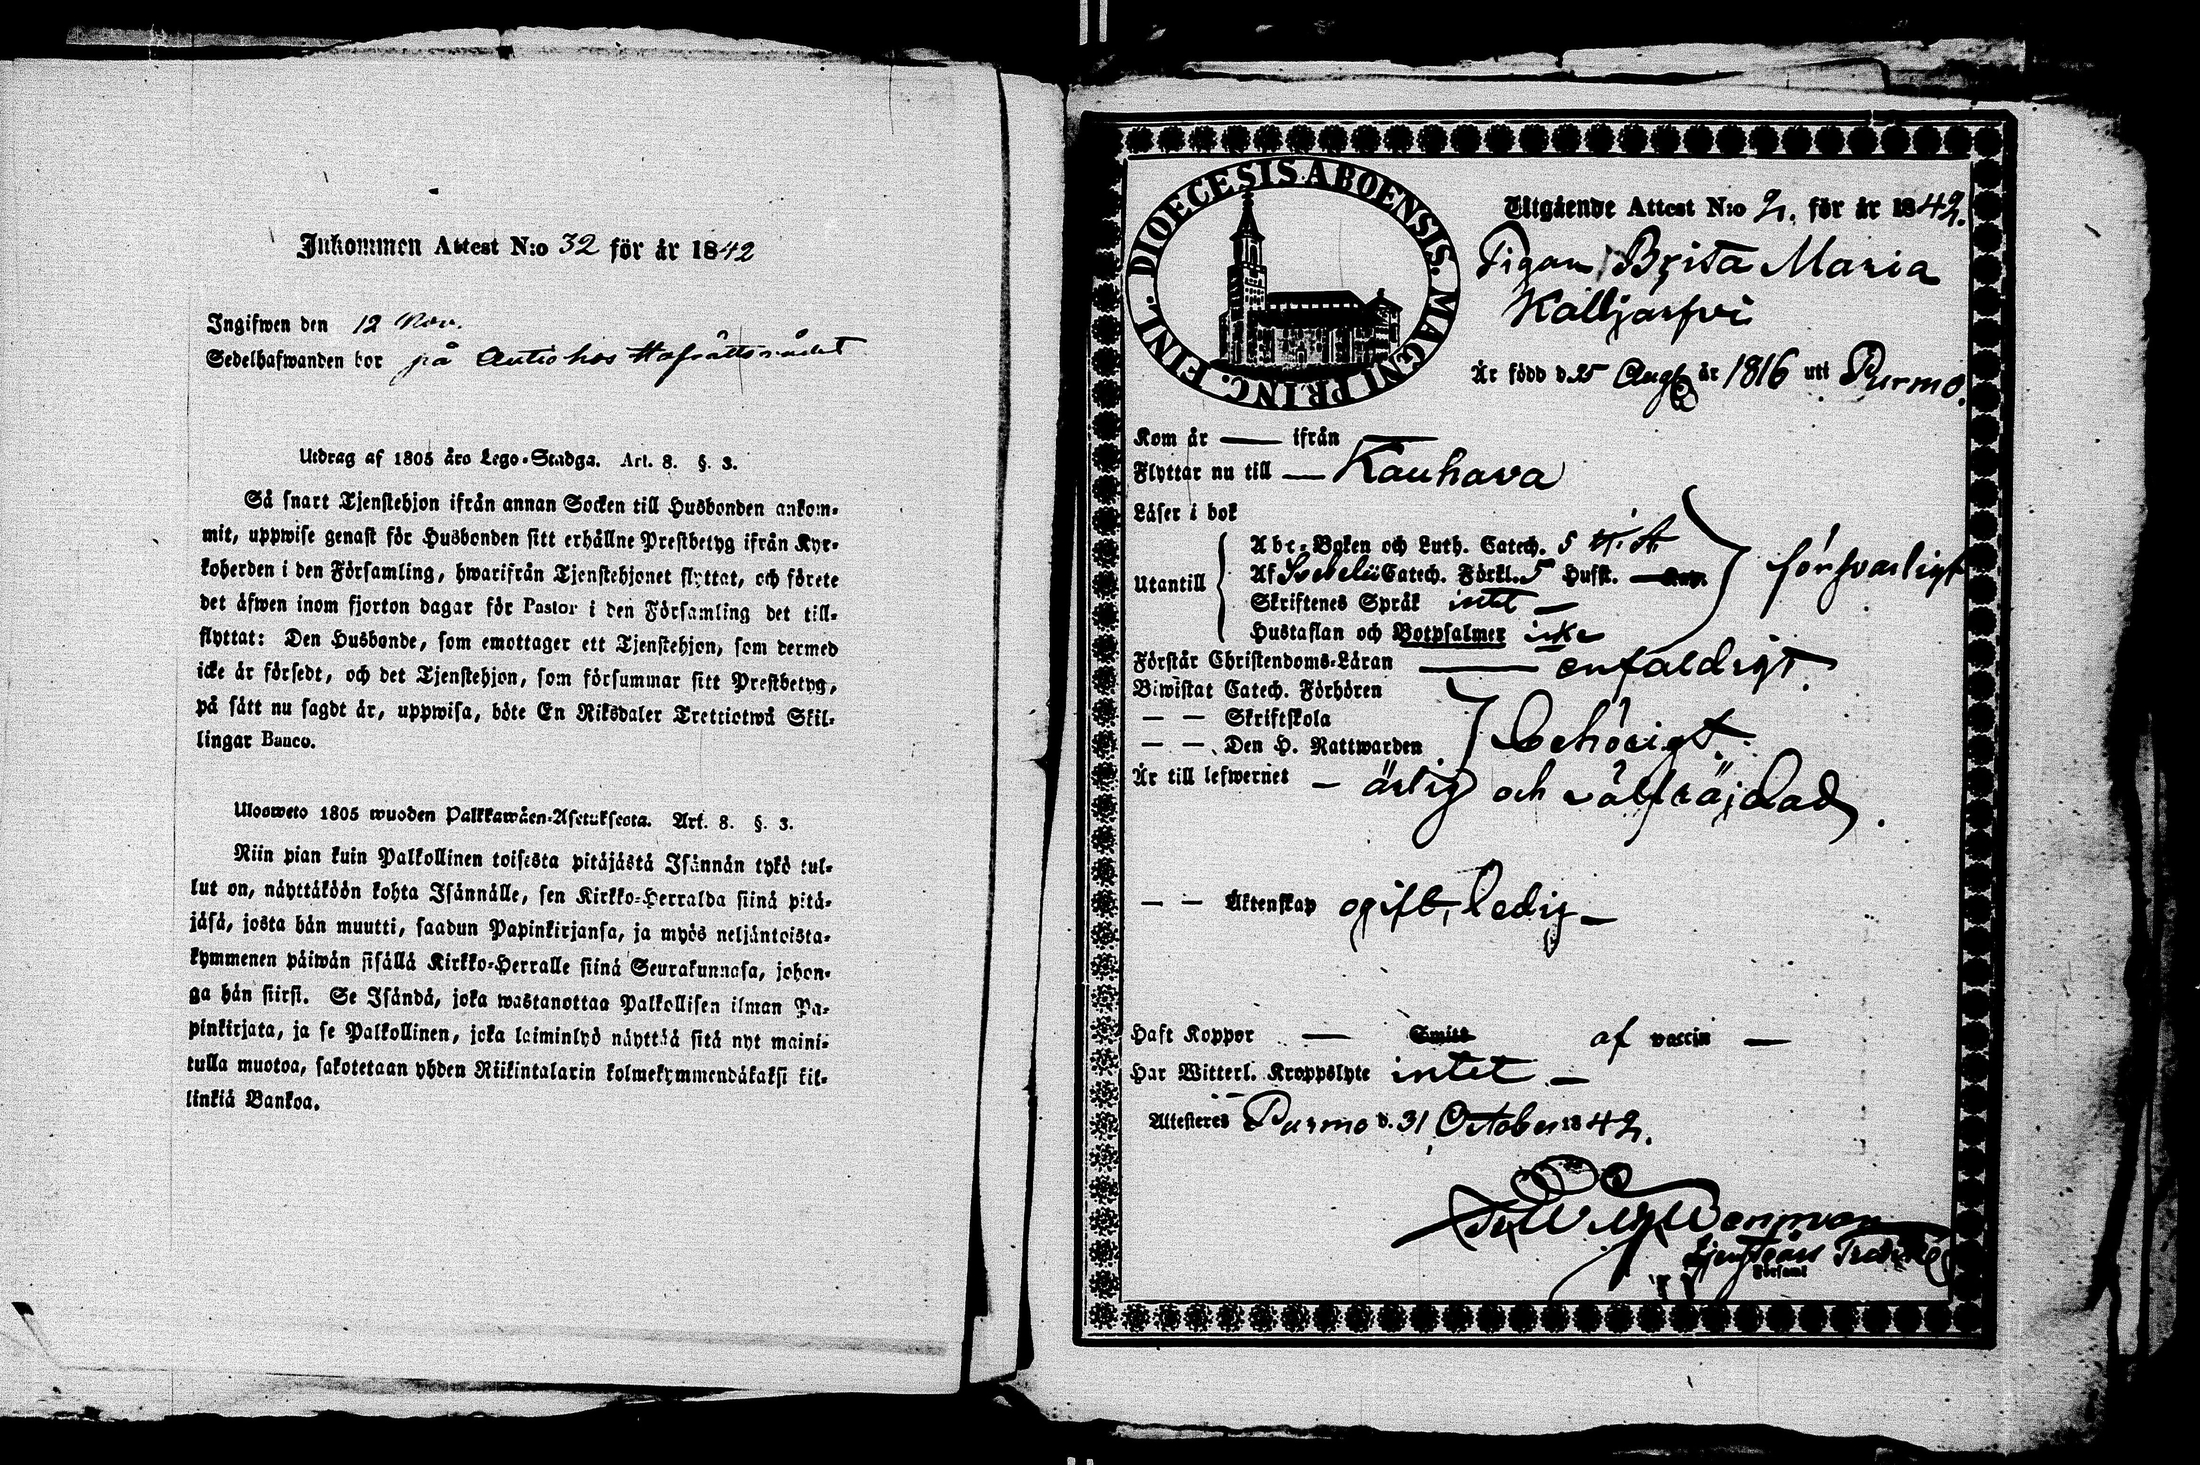 Inkommen Attest N:o 32 för år 1842
Ingifwen den 12 Nov.
Sedelhafwanden bor på Antio hos Hofrättsrådet
Utdrag af 1805 års Lego-Stadga. Art. 8. §. 3.
Så snart Tjenstehjon ifrån annan Socken till Husbonden ankom-
mit, uppwise genast för Husbonden sitt erhållne Prestbetyg ifrån Kyr-
koherden i den Församling, hwarifrån Tjenstehjonet flyttat, och förete
det äfwen inom fjorton dagar för Pastor i den Församling det till-
flyttat: Den Husbonde, som emottager ett Tjenstehjon, som dermed
icke är försedt, och det Tjenstehjon, som försummar sitt Prestbetyg,
på sätt nu sagdt är, uppwisa, böte En Riksdaler Trettiotwå Skil-
lingar Banco.
Ulosweto 1805 wuoden Palkkawäen-Asetuksesta. Art. 8. §. 3.
Niin pian kuin Palkollinen toisesta pitäjästä Isännän tykö tul-
lut on, näyttäköön kohta Isännälle, sen Kirkko-Herralda siinä pitä-
jäsä, josta hän muutti, saadun Papinkirjansa, ja myös neljäntoista-
kymmenen päiwän sisällä Kirkko-Herralle siinä Seurakunnasa, johon-
ga hän siirsi. Se Isändä, joka wastanottaa Palkollisen ilman Pa-
pinkirjata, ja se Palkollinen, joka laiminlyö näyttää sitä nyt maini-
tulla muotoa, sakotetaan yhden Riikintalarin kolmekymmendäkaksi kil-
linkiä Bankoa.
DIOECESIS ABOENSIS. MAGNI PRINC. FINL.
Utgående Attest N:o 2. för år 1842.
Pigan Brita Maria
Kalljärfvi
Är född d. 25 Aug. år 1816 uti Purmo.
Kom år — ifrån —
Flyttar nu till — Kauhava
Läser i bok
Utantill
Abc-Boken och Luth. Catech. 5 H. St.
Af Svebelii Catech. Förkl. 5 Hufst.
Skriftenes Språk intet —
Hustaflan och Botpsalmer icke
försvarligt
Förstår Christendoms-Läran — enfaldigt.
Biwistat Catech. Förhören
— — Skriftskola
— — Den H. Nattwarden
behörigt.
Är till lefwernet — ärlig och välfräjdad.
— — Äktenskap ogift, ledig —
Haft Koppor — Smitt af vaccin —
Har Witterl. Kroppslyte intet —
Attesteres Purmo d. 31 October 1842.
Församl